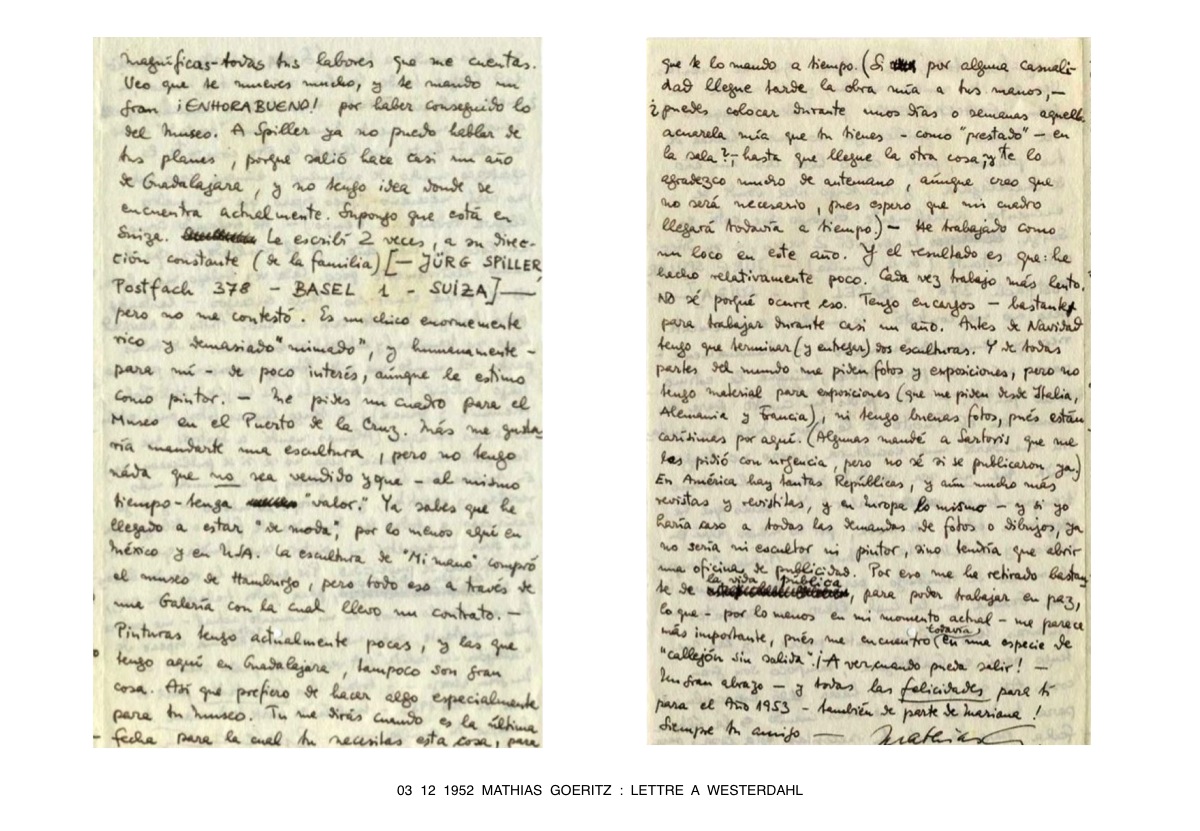 magníficas - todas tus labores que me cuentas.
Veo que te mueves mucho, y te mando un
gran ¡ENHORABUENO! por haber conseguido lo
del Museo. A Spiller ya no puedo hablar de
tus planes, porque salió hace casi un año
de Guadalajara, y no tengo idea donde se
encuentra actualmente. Supongo que está en
Suiza. Le escribí 2 veces, a su direc-
ción constante (de la familia) [— JÜRG SPILLER,
Postfach 378 - BASEL 1 - SUIZA] —
pero no me contestó. Es un chico enormemente
rico y demasiado "mimado", y humanamente -
para mí - de poco interés, aúnque le estimo
como pintor. — Me pides un cuadro para el
Museo en el Puerto de la Cruz. Más me gusta-
ría mandarte una escultura, pero no tengo
náda que no sea vendido y que - al mismo
tiempo - tenga "valor". Ya sabes que he
llegado a estar "de moda", por lo menos aquí en
México y en USA. La escultura de "Mi mano" compró
el museo de Hamburgo, pero todo eso a través de
una Galería con la cual llevo un contrato. —
Pinturas tengo actualmente pocas, y las que
tengo aquí en Guadalajara, tampoco son gran
cosa. Así que prefiero de hacer algo especialmente
para tu Museo. Tu me dirás cuando es la última
fecha para la cual tu necesitas esta cosa, para
que te lo mando a tiempo. (Si por alguna casuali-
dad llegue tarde la obra mía a tus manos, —
¿puedes colocar durante unos días o semanas aquella
acuarela mía que tu tienes - como "prestado" - en
la sala? -, hasta que llegue la otra cosa; y te lo
agradezco mucho de antemano, aúnque creo que
no será necesario, pues espero que mi cuadro
llegará todavía a tiempo.) — He trabajado como
un loco en este año. Y el resultado es que: he
hecho relativamente poco. Cada vez trabajo más lento.
NO sé porqué ocurre eso. Tengo encargos - bastantes
para trabajar durante casi un año. Antes de Navidad
tengo que terminar (y entregar) dos esculturas. Y de todas
partes del mundo me piden fotos y exposiciones, pero no
tengo material para exposiciones (que me piden desde Italia,
Alemania y Francia), ni tengo buenas fotos, pués están
carísimas por aquí. (Algunas mandé a Sartoris que me
las pidió con urgencia, pero no sé si se publicaron ya.)
En América hay tantas Repúblicas, y aún mucho más
revistas y revistitas, y en Europa lo mismo - y si yo
haría caso a todas las demandas de fotos o dibujos, ya
no sería ni escultor ni pintor, sino tendría que abrir
una oficina de publicidad. Por eso me he retirado bastan-
te de la vida pública, para poder trabajar en paz,
lo que - por lo menos en mi momento actual - me parece
más importante, pués me encuentro (todavía) en una especie de
"callejón sin salida". ¡A ver, cuando pueda salir! —
Un gran abrazo - y todas las felicidades para ti
para el Año 1953 - también de parte de Mariana!
Siempre tu amigo — Mathias
03 12 1952 MATHIAS GOERITZ : LETTRE A WESTERDAHL